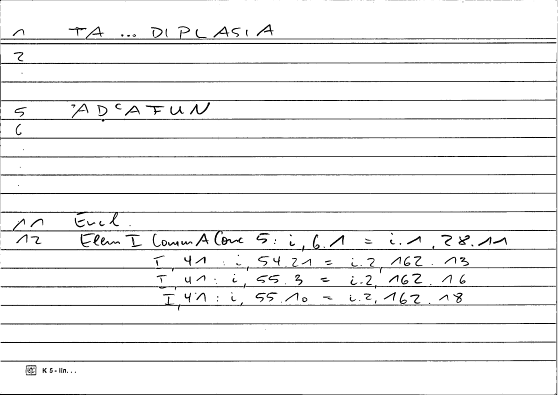 1 TA ... DIPLASIA
2
5 'AD<AFUN
6
11 Eucl.
12 Elem I Comm A Conc 5: i, 6.1 = i.1, 28.11
I, 41: i, 54.21 = i.2, 162.13
I, 41: i, 55.3 = i.2, 162.16
I, 41: i, 55.10 = i.2, 162.18
K 5 - lin...